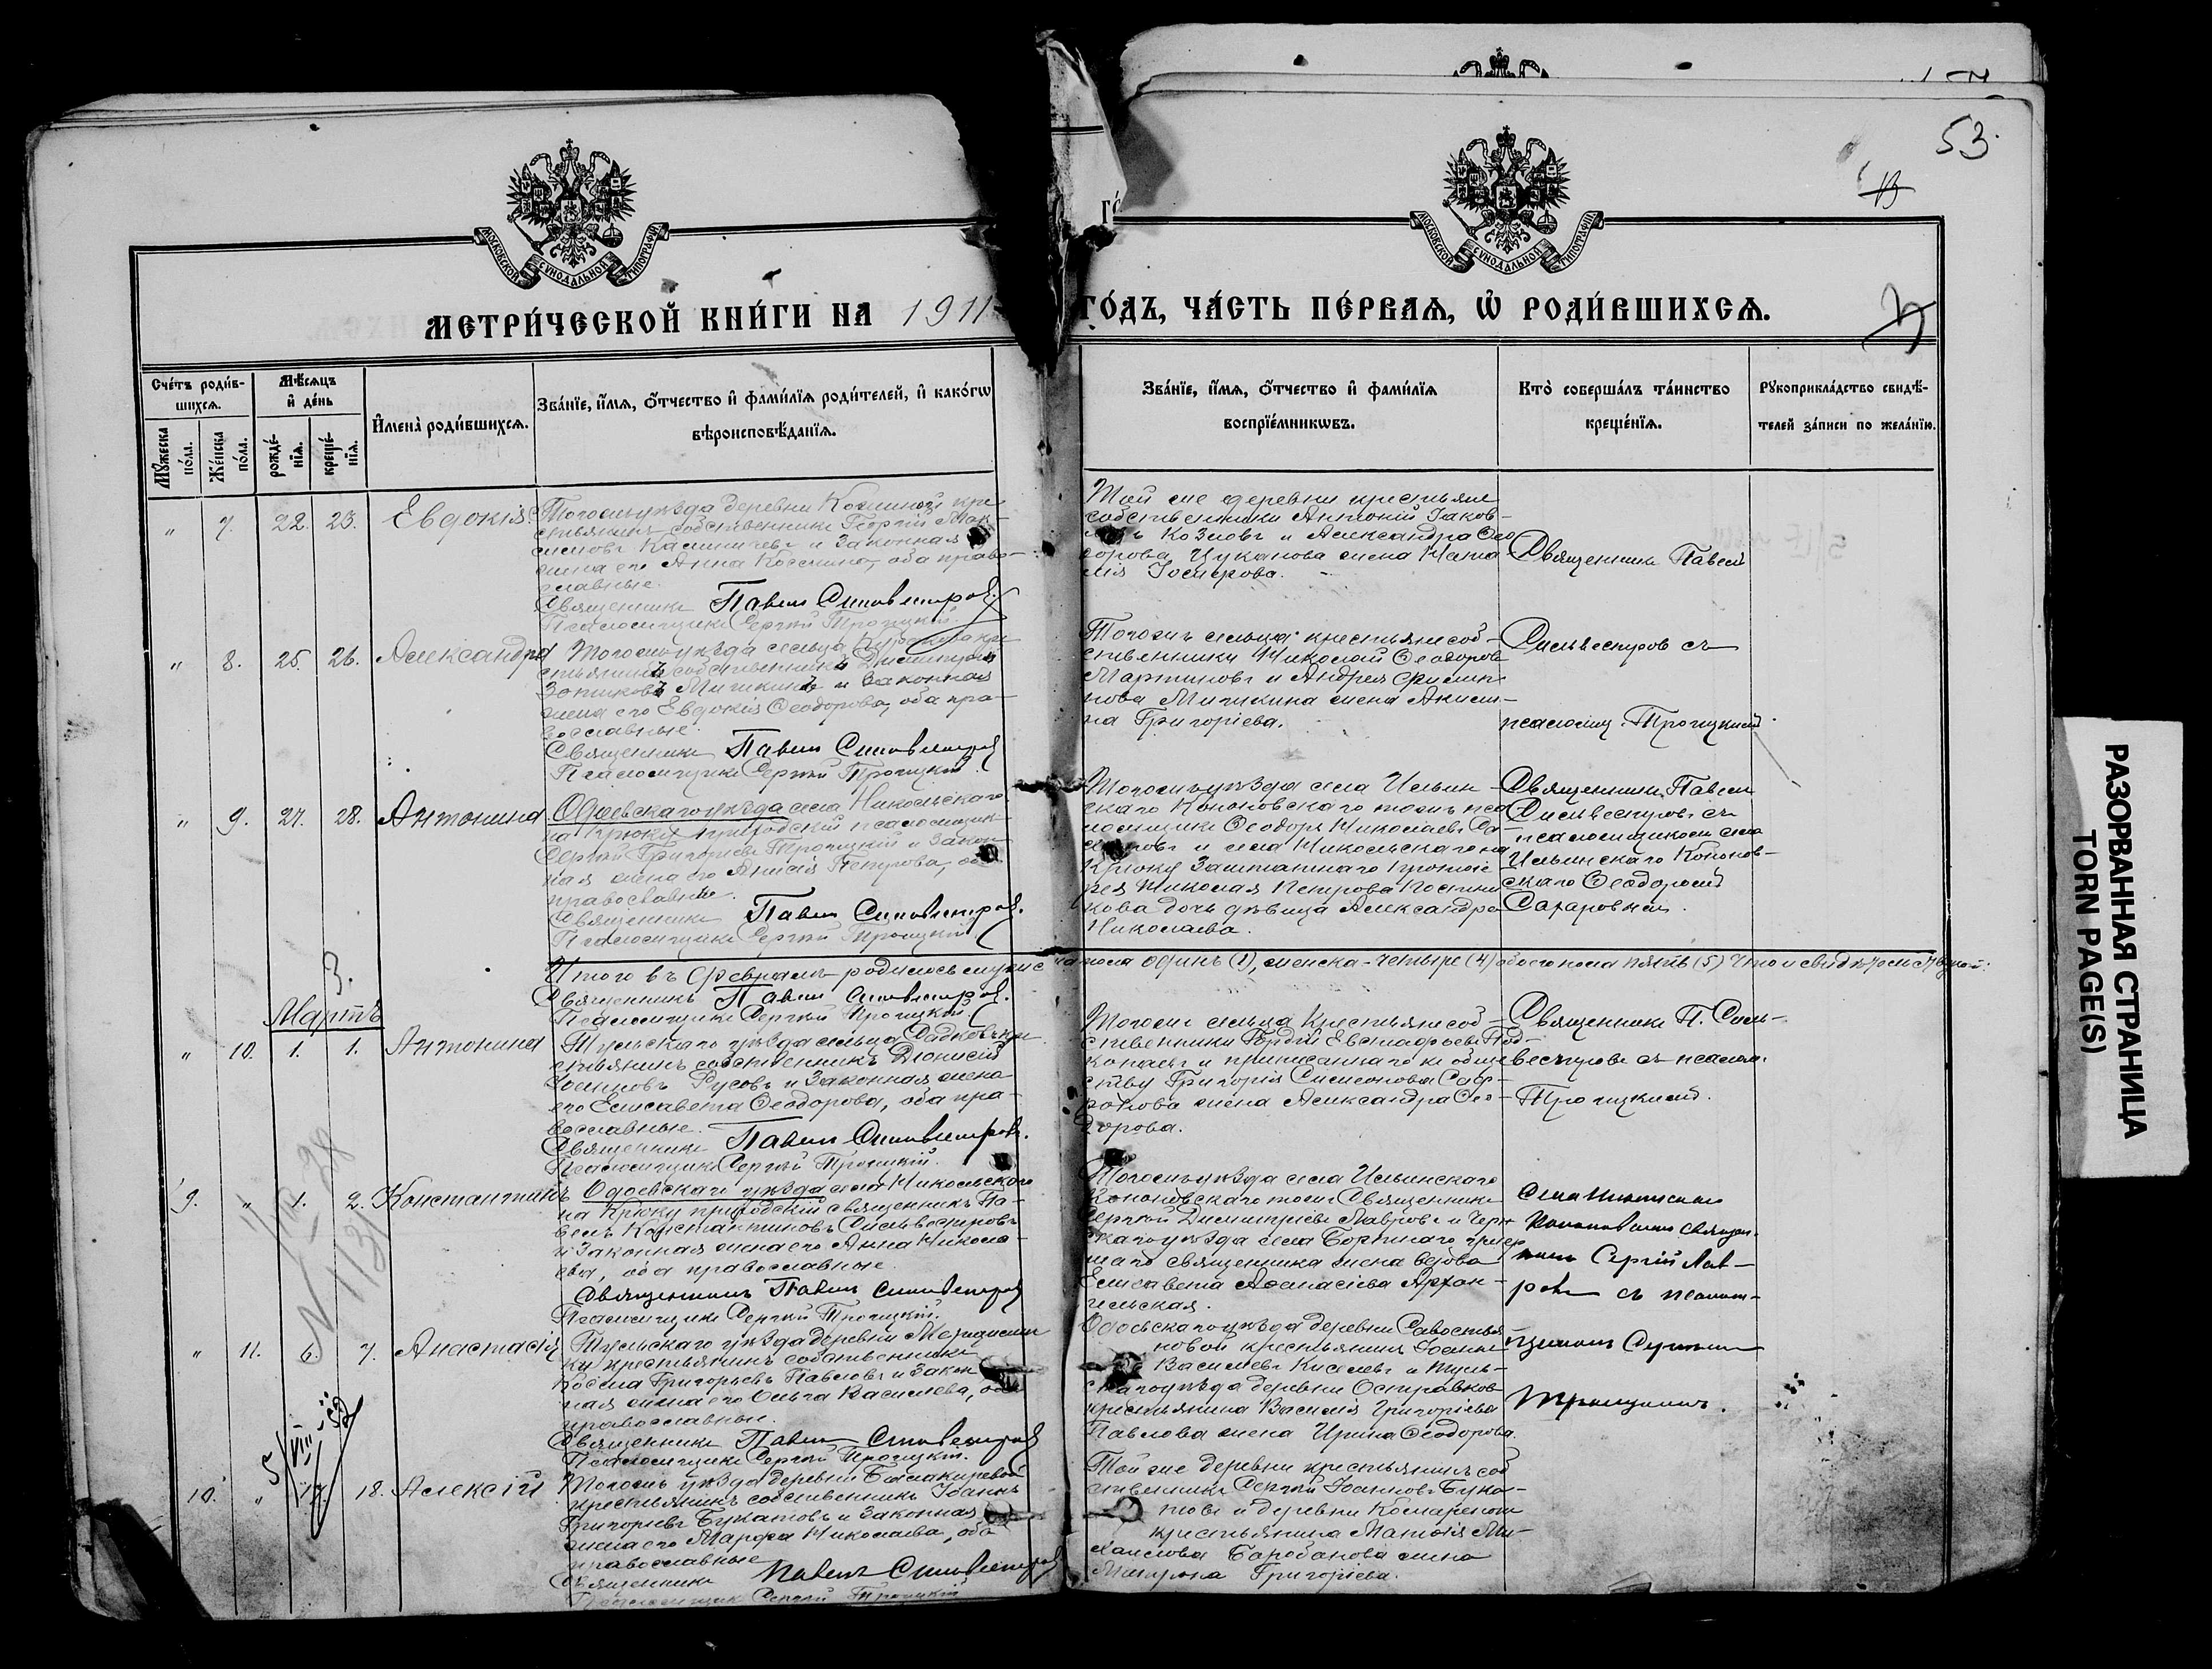 53.
МОСКОВСКОЙ СѴНОДАЛЬНОЙ ТИПОГРАФІИ
МОСКОВСКОЙ СѴНОДАЛЬНОЙ ТИПОГРАФІИ
МЕТРИ́ЧЕСКОЙ КНИ́ГИ НА 1911
ГО́ДЪ, ЧА́СТЬ ПЕ́РВАѦ, Ѽ РОДИ́ВШИХСѦ.
Сче́тъ роди́в-
шихсѧ.
Мꙋ́жеска
по́ла.
Же́нска
по́ла.
Мѣ́сѧцъ
и҆ де́нь
рожде́-
нїѧ.
креще́-
нїѧ.
И҆мена̀ роди́вшихсѧ.
Зва́нїе, и҆́мѧ, ѻ҆́тчество и҆ фами́лїѧ роди́телей, и҆ како́гѡ
вѣроисповѣ́данїѧ.
Зва́нїе, и҆́мѧ, ѻ҆́тчество и҆ фами́лїѧ
воспрїе́мникѡвъ.
Кто̀ соверша́лъ та́инство
креще́нїѧ.
Рꙋкоприкла́дство свидѣ́-
телей за́писи по жела́нїю.
" 7. 22. 23. Евдокія.
Тогожъ уѣзда деревни
православные.
Священникъ Павелъ Сильвестровъ
Псаломщикъ Сергій Троицкій.
Той же деревни крестьяне
собственники Антоній Іаков-
Козловъ и Александра Ѳео
дорова Цуканова жена Ната
лія
Священникъ Павелъ
" 8. 25. 26. Александра
Тогожъ уѣзда сельца кре
стьянинъ собственникъ Димитрій
Зотиковъ Мишкинъ и законная
жена его Евдокія Ѳеодорова, оба пра-
вославные.
Священникъ Павелъ Сильвестровъ
Псаломщикъ Сергій Троицкій.
Тогожъ сельца крестьяне соб-
ственники Николай Ѳеодоровъ
Мартиновъ и Андрея Филип
пова Мишкина жена Акили-
на Григоріева.
Сильвестровъ съ
псаломщ. Троицкимъ.
" 9. 27. 28. Антонина
Одоевскаго уѣзда села Никольскаго
на Крюку приходскій псаломщикъ
Сергій Григорьевъ Троицкій и закон-
ная жена его Анисія Петрова, оба
православные.
Священникъ Павелъ Сильвестровъ.
Псаломщикъ Сергій Троицкій
Тогожъ уѣзда села Ильин-
скаго Кононовскаго тожъ пса
ломщикъ Ѳеодоръ Николаевъ Са-
харовъ и села Никольскаго на
Крюку заштатнаго протоіе
рея Николая Петрова
дочь дѣвица Александра
Николаева.
Священникъ Павелъ
Сильвестровъ съ
псаломщикомъ села
Ильинскаго Кононов-
скаго Ѳеодоромъ
Сахаровымъ.
Итого въ Февралѣ родилось мужеска пола одинъ (1), женска - четыре (4) обоего пола пять (5) Что и свидѣтельствуютъ:
Священникъ Павелъ Сильвестровъ.
Псаломщикъ Сергій Троицкій.
3.
Мартъ
" 10. 1. 1. Антонина
Тульскаго уѣзда сельца кре
стьянинъ собственникъ Діонисій
Русовъ и законная жена
его Елисавета Ѳеодорова, оба пра-
вославные.
Священникъ Павелъ Сильвестровъ.
Псаломщикъ Сергій Троицкій.
Тогожъ сельца крестьяне соб-
ственники Гордій Евстафьевъ Под-
копаевъ и приписаннаго къ обще
ству Григорія Симеонова Саф-
ронова жена Александра Ѳео-
дорова.
Священникъ П. Силь-
вестровъ съ псалом.
Троицкимъ.
9. " 1. 2. Константинъ
Одоевскаго уѣзда села Никольскаго
на Крюку приходскій священникъ Па-
велъ Константиновъ Сильвестровъ
и законная жена его Анна Никола-
ева, оба православные.
Священникъ Павелъ Сильвестровъ
Псаломщикъ Сергій Троицкій.
Тогожъ уѣзда села Ильинскаго
Кононовскаго тожъ Священникъ
Сергій Димитріевъ Лавровъ и Черн
скаго уѣзда села умер
шаго священника жена вдова
Елисавета Аѳанасіева Архан-
гельская.
Села Ильинскаго
Кононовскаго священ-
никъ Сергій Лав-
ровъ съ псалом-
щикомъ Сергіемъ
Троицкимъ.
" 11. 6. 7. Анастасія
Тульскаго уѣзда деревни
крестьянинъ собственникъ
Косма Григорьевъ Павловъ и закон
ная жена его Ольга Василіева, оба
православные.
Священникъ Павелъ Сильвестровъ
Псаломщикъ Сергій Троицкій.
Одоевскаго уѣзда деревни Савостья
новой крестьянинъ Іоаннъ
Василіевъ Киселевъ и Туль-
скаго уѣзда деревни
крестьянина Василія Григоріева
Павлова жена Ирина Ѳеодорова.
10. " 17. 18. Алексій
Тогожъ уѣзда деревни Балакиревой
крестьянинъ собственникъ Іоаннъ
Григорьевъ Букатовъ и законная
жена его Марфа Николаева, оба
православные
Священникъ Павелъ Сильвестровъ
Псаломщикъ Сергій Троицкій
Той же деревни крестьянинъ соб
ственникъ Сергій Іоанновъ Бука-
товъ и деревни
крестьянина Матвія Ми-
хаилова Барабанова жена
Григоріева.
РАЗОРВАННАЯ СТРАНИЦА
TORN PAGE(S)